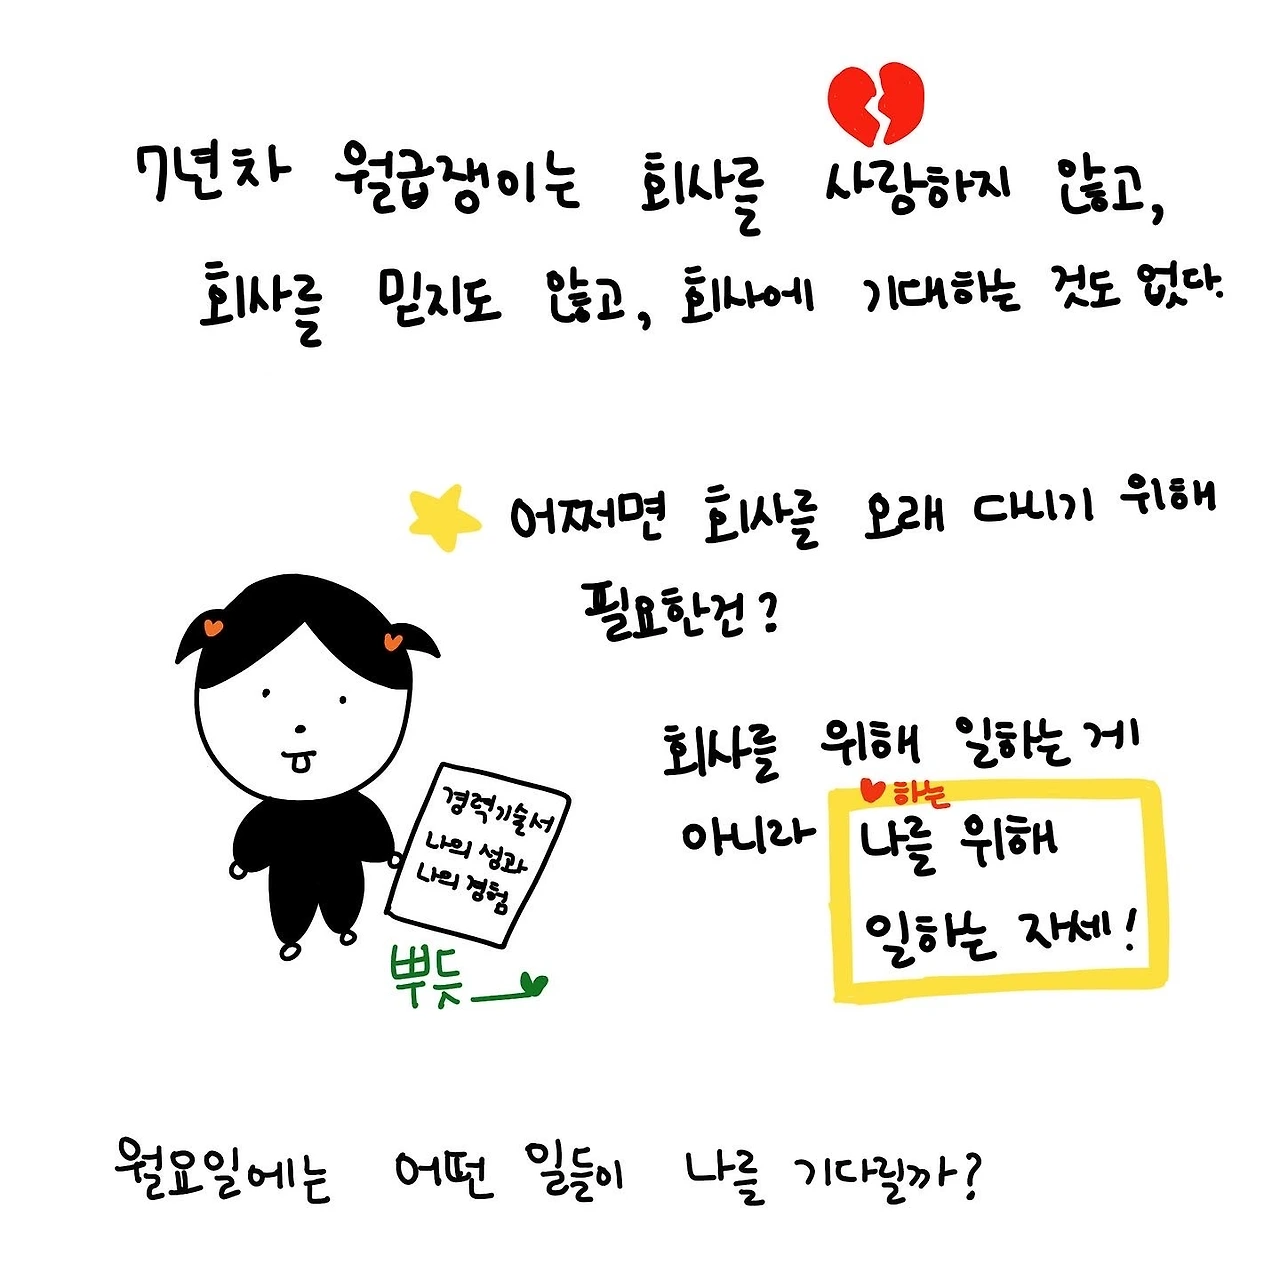 7년차 월급쟁이는 회사를 사랑하지 않고,
회사를 믿지도 않고, 회사에 기대하는 것도 없다.
어쩌면 회사를 오래 다니기 위해
필요한건?
회사를 위해 일하는게
아니라 ♥하는 나를 위해
일하는 자세!
경력기술서
나의 성과
나의 경험
뿌듯
월요일에는 어떤 일들이 나를 기다릴까?